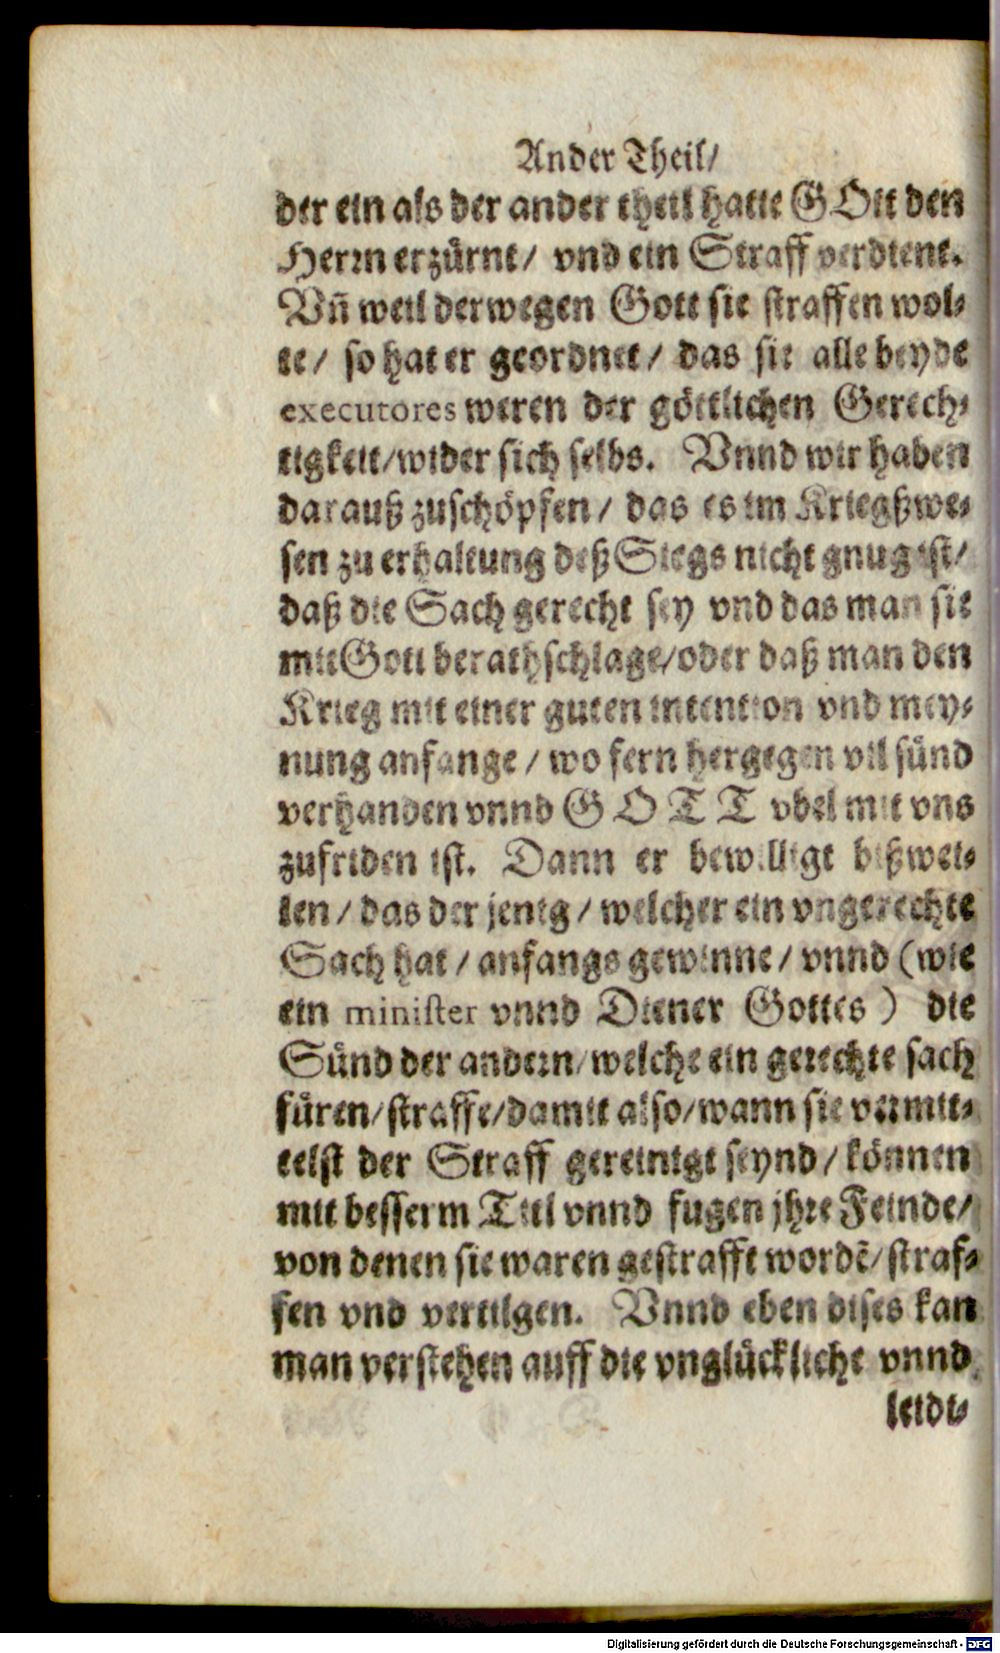 Ander Theil/
der ein als der ander theil hatte GOtt den
Herrn erzürnt/ vnd ein Straff verdient.
Vñ weil derwegen Gott sie straffen wol-
te/ so hat er geordnet/ das sie alle beyde
executores weren der göttlichen Gerech-
tigkeit/wider sich selbs. Vnnd wir haben
darauß zuschöpfen/ das es im Kriegßwe-
sen zu erhaltung deß Siegs nicht gnug ist/
daß die Sach gerecht sey vnd das man sie
mit Gott berathschlage/oder daß man den
Krieg mit einer guten intention vnd mey-
nung anfange/ wo fern hergegen vil sünd
verhanden vnnd GOTT vbel mit vns
zufriden ist. Dann er bewilligt bißwei-
len/ das der jenig/ welcher ein vngerechte
Sach hat/ anfangs gewinne/ vnnd (wie
ein minister vnnd Diener Gottes) die
Sünd der andern/welche ein gerechte sach
füren/straffe/damit also/wann sie vermit-
telst der Straff gereinigt seynd/ können
mit besserm Titl vnnd fugen jhre Feinde/
von denen sie waren gestrafft wordẽ/straf-
fen vnd vertilgen. Vnnd eben dises kan
man verstehen auff die vnglückliche vnnd
leidi-
Digitalisierung gefördert durch die Deutsche Forschungsgemeinschaft - DFG